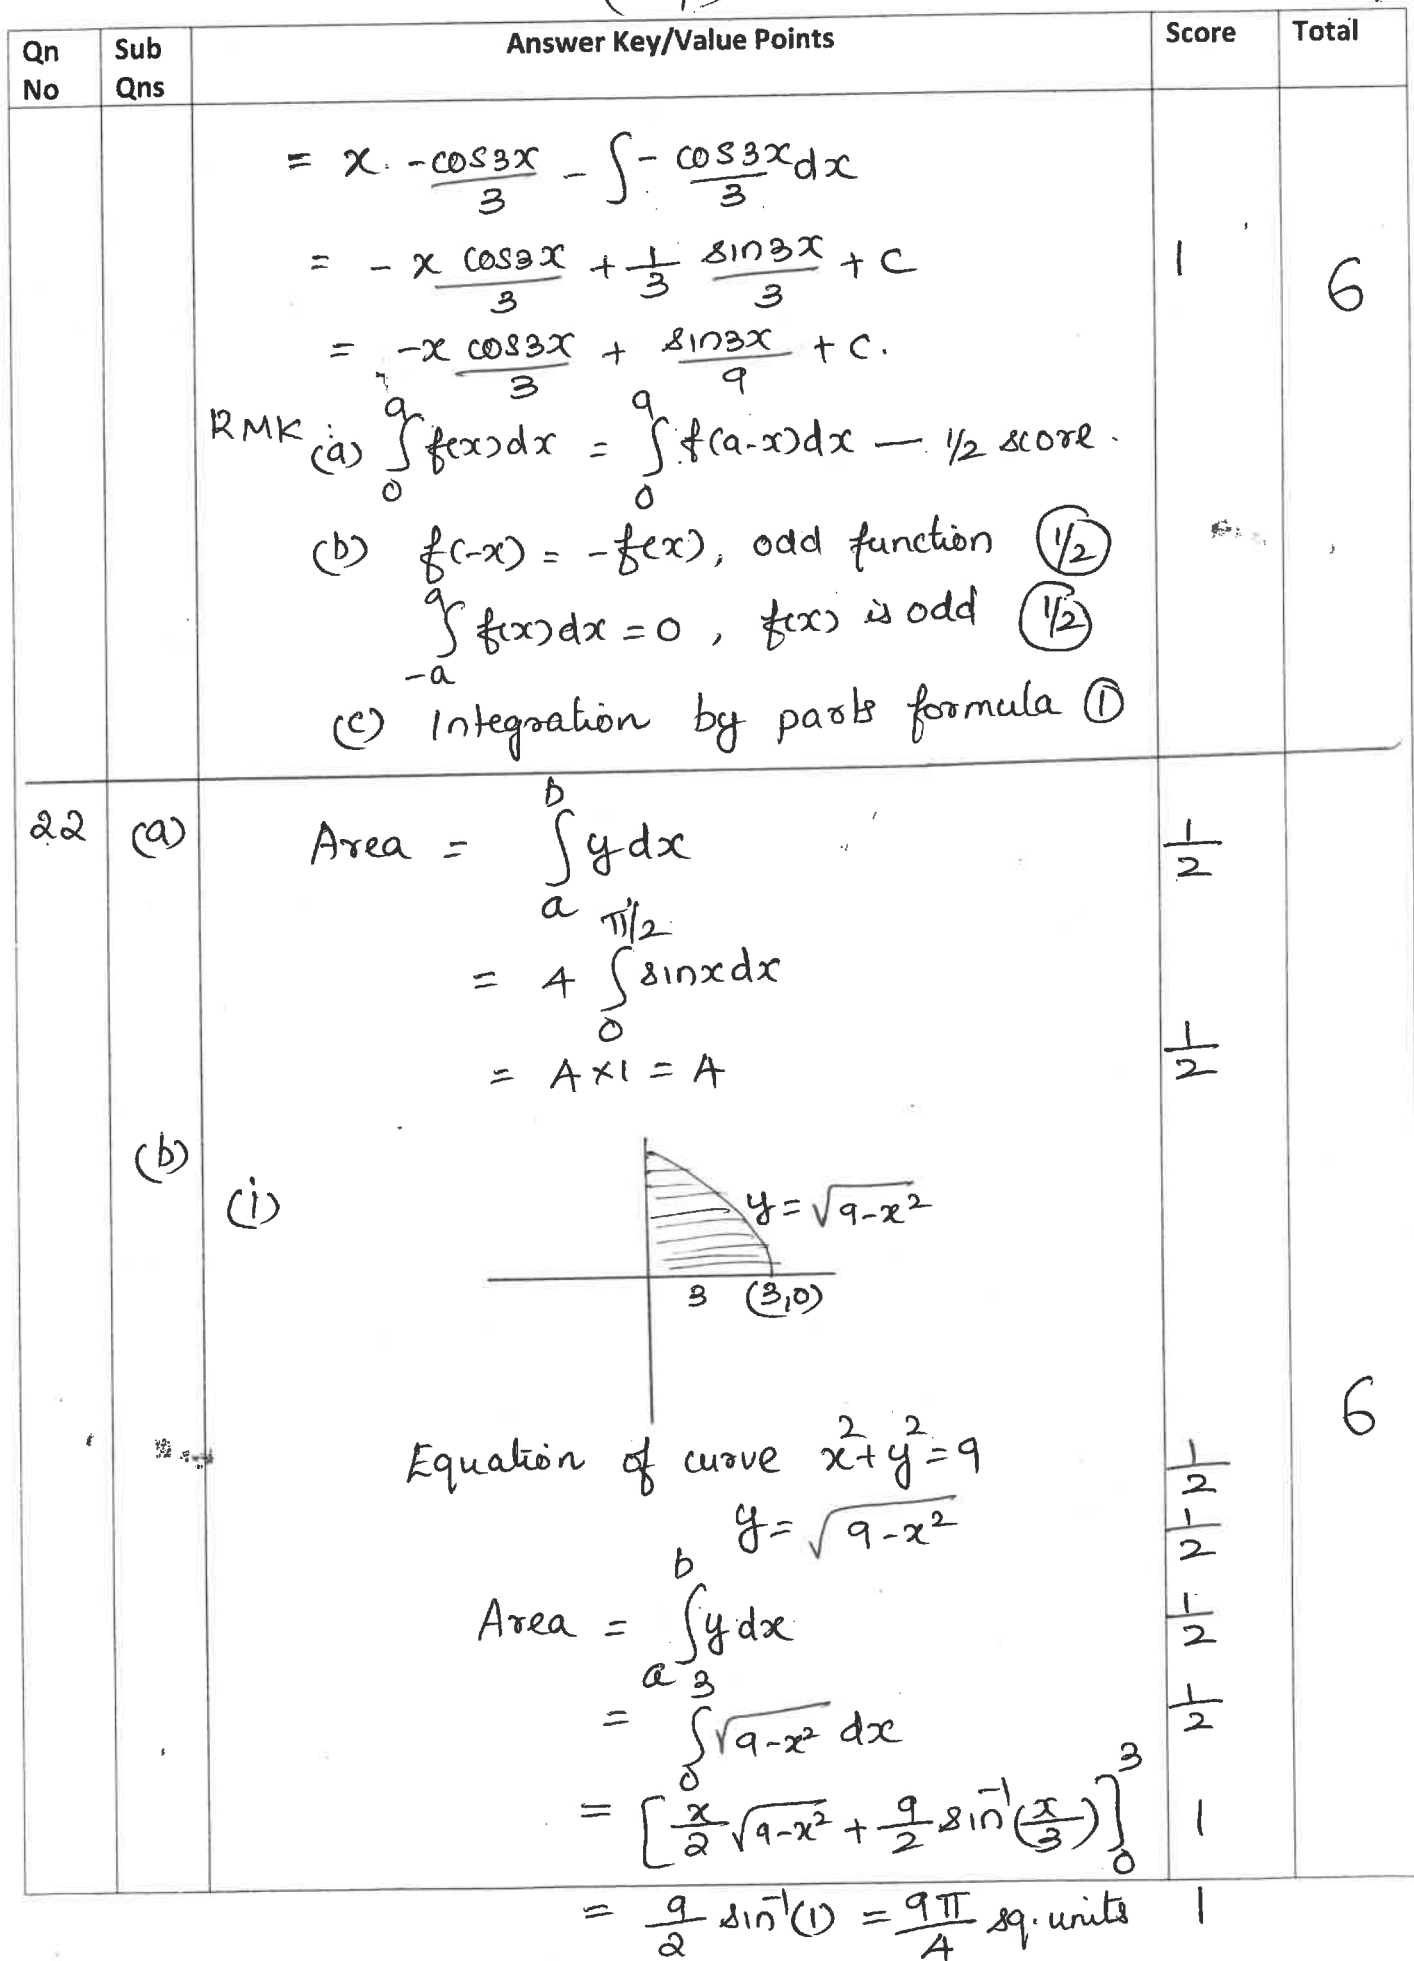 Qn No | Sub Qns | Answer Key/Value Points | Score | Total
= x. -cos3x/3 - ∫ - cos3x/3 dx
= - x cos3x/3 + 1/3 sin3x/3 + C | 1 | 6
= -x cos3x/3 + sin3x/9 + C.
RMK (a) ∫₀ᵃ f(x)dx = ∫₀ᵃ f(a-x)dx — 1/2 score.
(b) f(-x) = -f(x), odd function (1/2)
∫₋ₐᵃ f(x)dx = 0, f(x) is odd (1/2)
(c) Integration by parts formula (1)
22 (a) Area = ∫ₐᵇ y dx | 1/2
= 4 ∫₀^(π/2) sinx dx
= 4 x1 = 4 | 1/2
(b)
(i)
y = √(9-x²)
3 (3,0)
6
Equation of curve x²+y²=9 | 1/2
y = √(9-x²) | 1/2
Area = ∫ₐᵇ y dx | 1/2
= ∫₀³ √(9-x²) dx | 1/2
= [x/2 √(9-x²) + 9/2 sin⁻¹(x/3)]₀³ | 1
= 9/2 sin⁻¹(1) = 9π/4 sq. units | 1